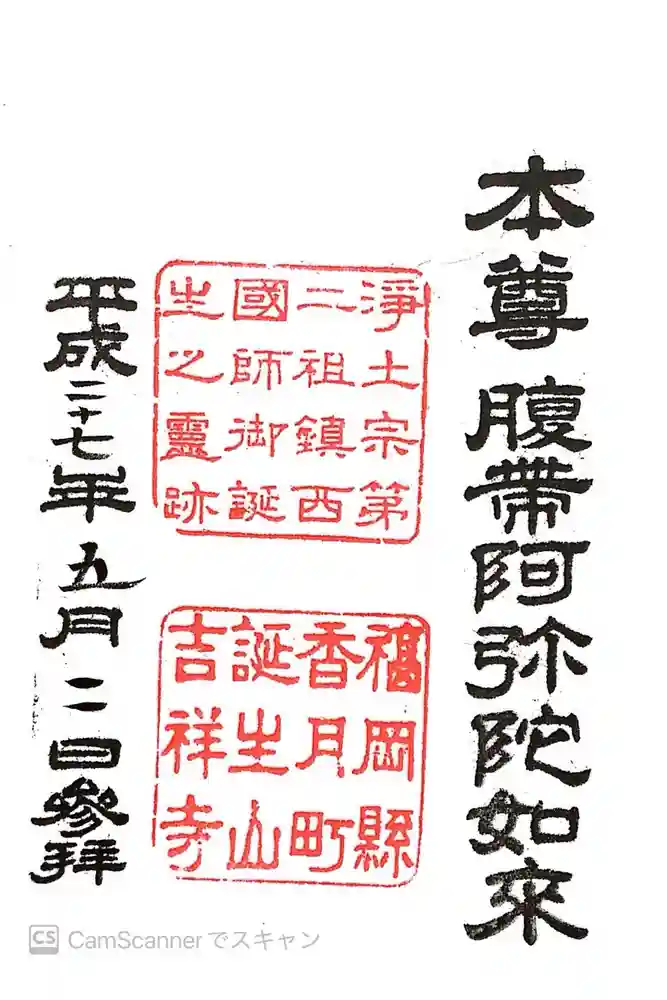 本尊 腹帶阿弥陀如來
淨土宗第
二祖鎮西
國師御誕
生之靈跡
福岡縣
香月町
誕生山
吉祥寺
平成二十七年五月二日參拜
CS CamScanner でスキャン